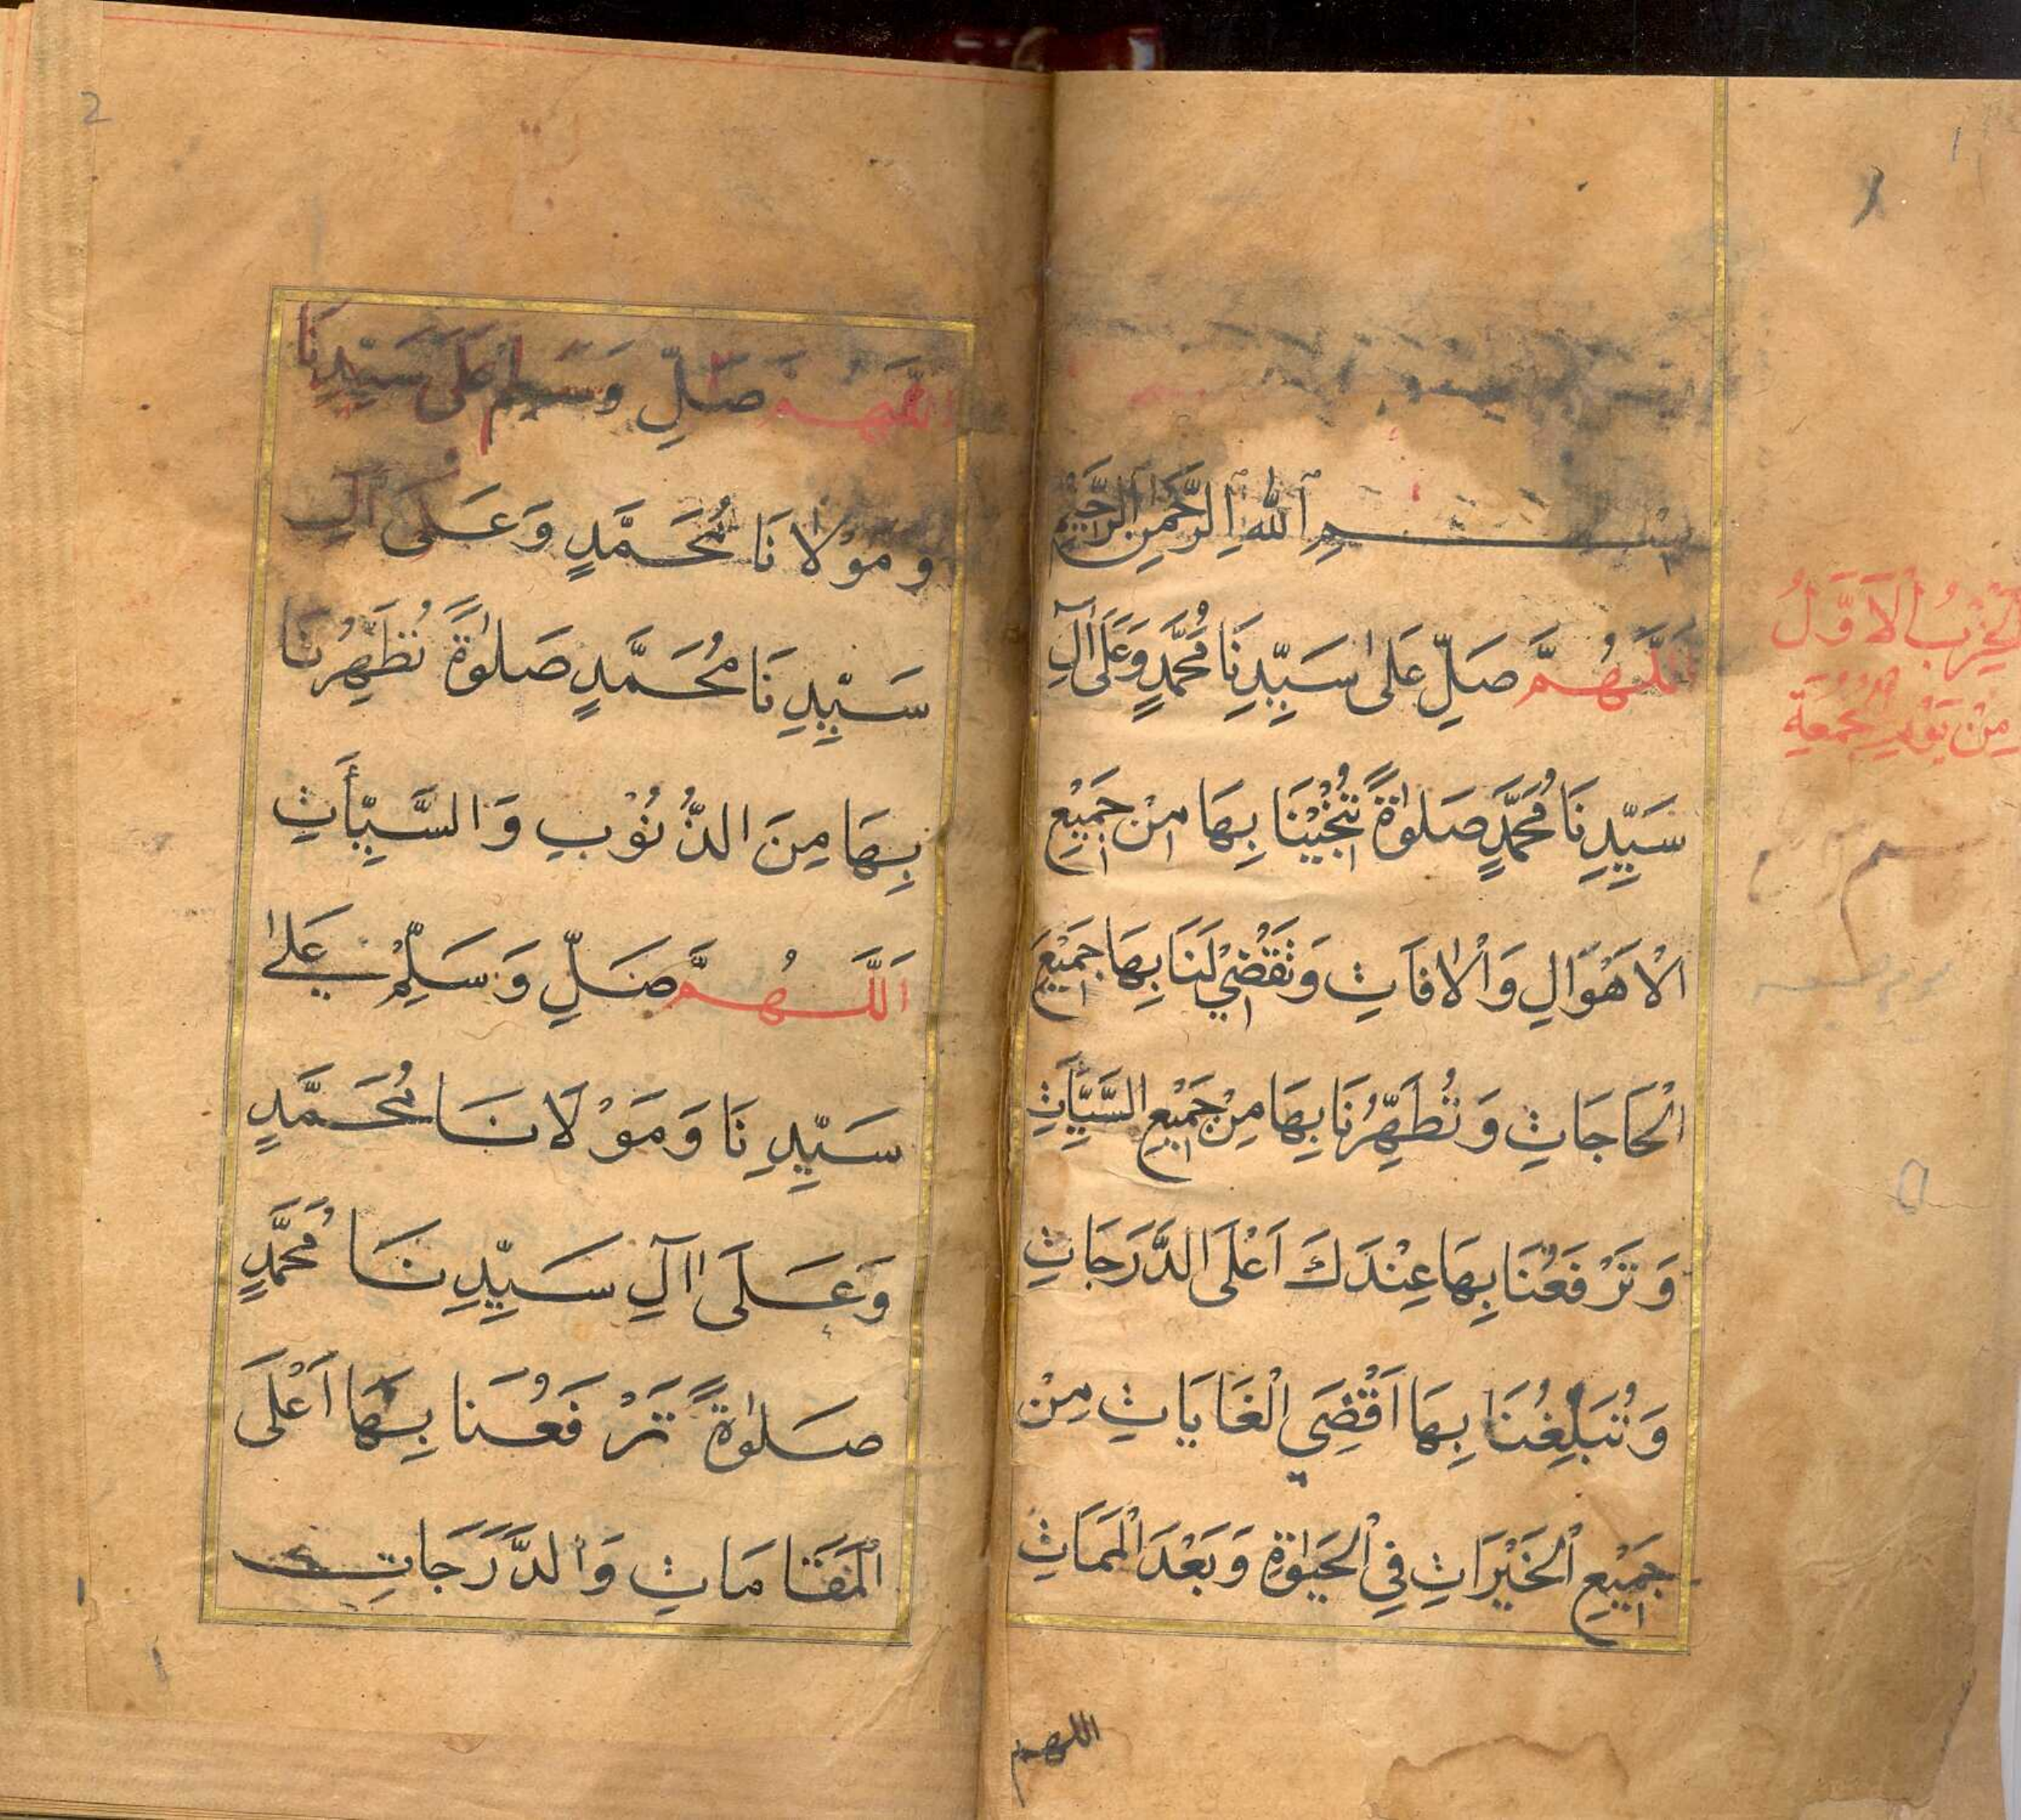 بِسْمِ ٱللهِ ٱلرَّحْمٰنِ ٱلرَّحِيْمِ
اَللّٰهُمَّ صَلِّ عَلٰى سَيِّدِنَا مُحَمَّدٍ وَعَلٰى آلِ
سَيِّدِنَا مُحَمَّدٍ صَلٰوةً تُنْجِيْنَا بِهَا مِنْ جَمِيْعِ
الْاَهْوَالِ وَالْاٰفَاتِ وَتَقْضِيْ لَنَا بِهَا جَمِيْعَ
الْحَاجَاتِ وَتُطَهِّرُنَا بِهَا مِنْ جَمِيْعِ السَّيِّاٰتِ
وَتَرْفَعُنَا بِهَا عِنْدَكَ اَعْلَى الدَّرَجَاتِ
وَتُبَلِّغُنَا بِهَا اَقْصَي الْغَايَاتِ مِنْ
جَمِيْعِ الْخَيْرَاتِ فِي الْحَيٰوةِ وَبَعْدَ الْمَمَاتِ
اللهم
الْحِزْبُ الْاَوَّلُ
مِنْ يَوْمِ الْجُمُعَةِ
1
2
اَللّٰهُمَّ صَلِّ وَسَلِّمْ عَلَى سَيِّدِنَا
وَمَوْلَانَا مُحَمَّدٍ وَعَلَى آلِ
سَيِّدِنَا مُحَمَّدٍ صَلٰوةً تُطَهِّرُنَا
بِهَا مِنَ الذُّنُوْبِ وَالسَّيِّأَتِ
اَللّٰهُمَّ صَلِّ وَسَلِّمْ عَلٰي
سَيِّدِنَا وَمَوْلَانَا مُحَمَّدٍ
وَعَلَى اٰلِ سَيِّدِنَا مُحَمَّدٍ
صَلٰوةً تَرْفَعُنَا بِهَا اَعْلَى
الْمَقَامَاتِ وَالدَّرَجَاتِ